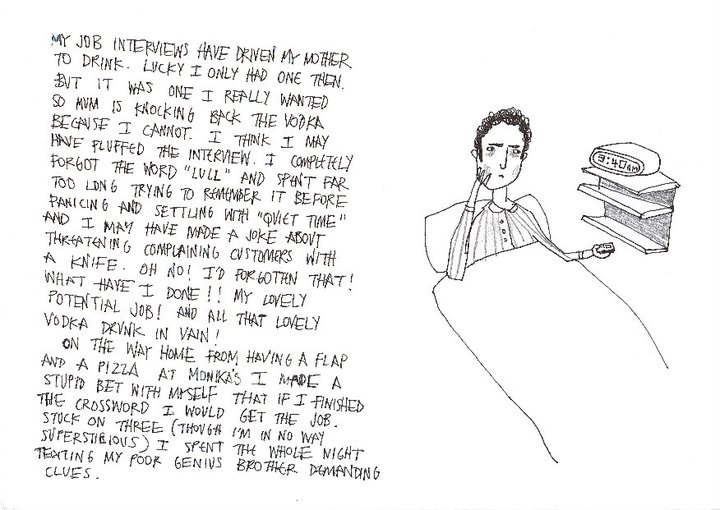 MY JOB INTERVIEWS HAVE DRIVEN MY MOTHER
TO DRINK. LUCKY I ONLY HAD ONE THEN.
BUT IT WAS ONE I REALLY WANTED
SO MUM IS KNOCKING BACK THE VODKA
BECAUSE I CANNOT. I THINK I MAY
HAVE FLUFFED THE INTERVIEW. I COMPLETELY
FORGOT THE WORD "LULL" AND SPENT FAR
TOO LONG TRYING TO REMEMBER IT BEFORE
PANICING AND SETTLING WITH "QUIET TIME"
AND I MAY HAVE MADE A JOKE ABOUT
THREATENING COMPLAINING CUSTOMERS WITH
A KNIFE. OH NO! I'D FORGOTTEN THAT!
WHAT HAVE I DONE!! MY LOVELY
POTENTIAL JOB! AND ALL THAT LOVELY
VODKA DRUNK IN VAIN!
ON THE WAY HOME FROM HAVING A FLAP
AND A PIZZA AT MONIKA'S I MADE A
STUPID BET WITH MYSELF THAT IF I FINISHED
THE CROSSWORD I WOULD GET THE JOB.
STUCK ON THREE (THOUGH I'M IN NO WAY
SUPERSTIBIOUS) I SPENT THE WHOLE NIGHT
TEXTING MY POOR GENIUS BROTHER DEMANDING
CLUES.
3:40am